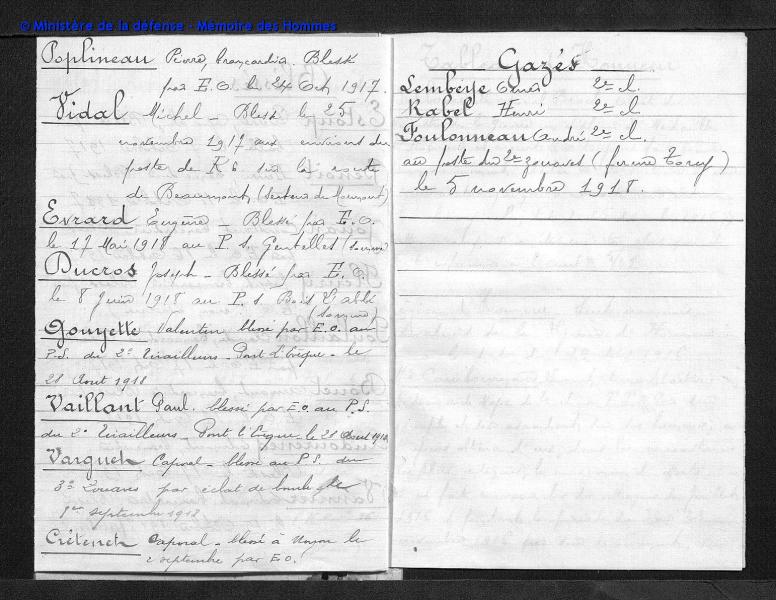 © Ministère de la défense - Mémoire des Hommes
Poplineau Pierre, brancardier. Blessé
par E.O. le 24 Oct. 1917.
Vidal Michel - Blessé le 25
novembre 1917 aux environs du
poste de K6 sur la route
de Beaumont, (Secteur de Louvemont)
Evrard Eugène - Blessé par E.O.
le 17 Mai 1918 au P.S. Gentelles (Somme)
Ducros Joseph - Blessé par E.O.
le 8 Juin 1918 au P.S. Bois l'abbé
(Somme)
Gouyette Valentin blessé par E.O. au
P.S. du 2e Tirailleurs - Pont l'Evêque - le
28 Aout 1918
Vaillant Paul. blessé par E.O. au P.S.
du 2e Tirailleurs - Pont l'Evêque - le 28 Aout 1918
Caporal - blessé au P.S. du
3e Zouaves par éclat de bombe, le
1er septembre 1918
Caporal - blessé à Noyon le
2 septembre par E.O.
Gazés
Lembeye 2e cl.
Rabel Henri 2e cl.
Foulonneau André 2e cl.
au poste du 2e zouaves (ferme Torcy)
le 5 novembre 1918.